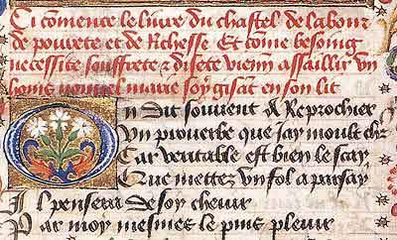 Ci comence le liure du chastel de labour
de pourete et de Richesse Et cõme besoing
necessite souffrete & disete vienn assaillir vn
home nouuel marie soy gisãt en son lit
On dit souuent & Reprochier
Vn prouerbe que jay moult chr
Car veritable est bien le scay
Que mettez vn fol a par say
Il pensera de soy cheuir
Par moy mesmes le puis pleuir